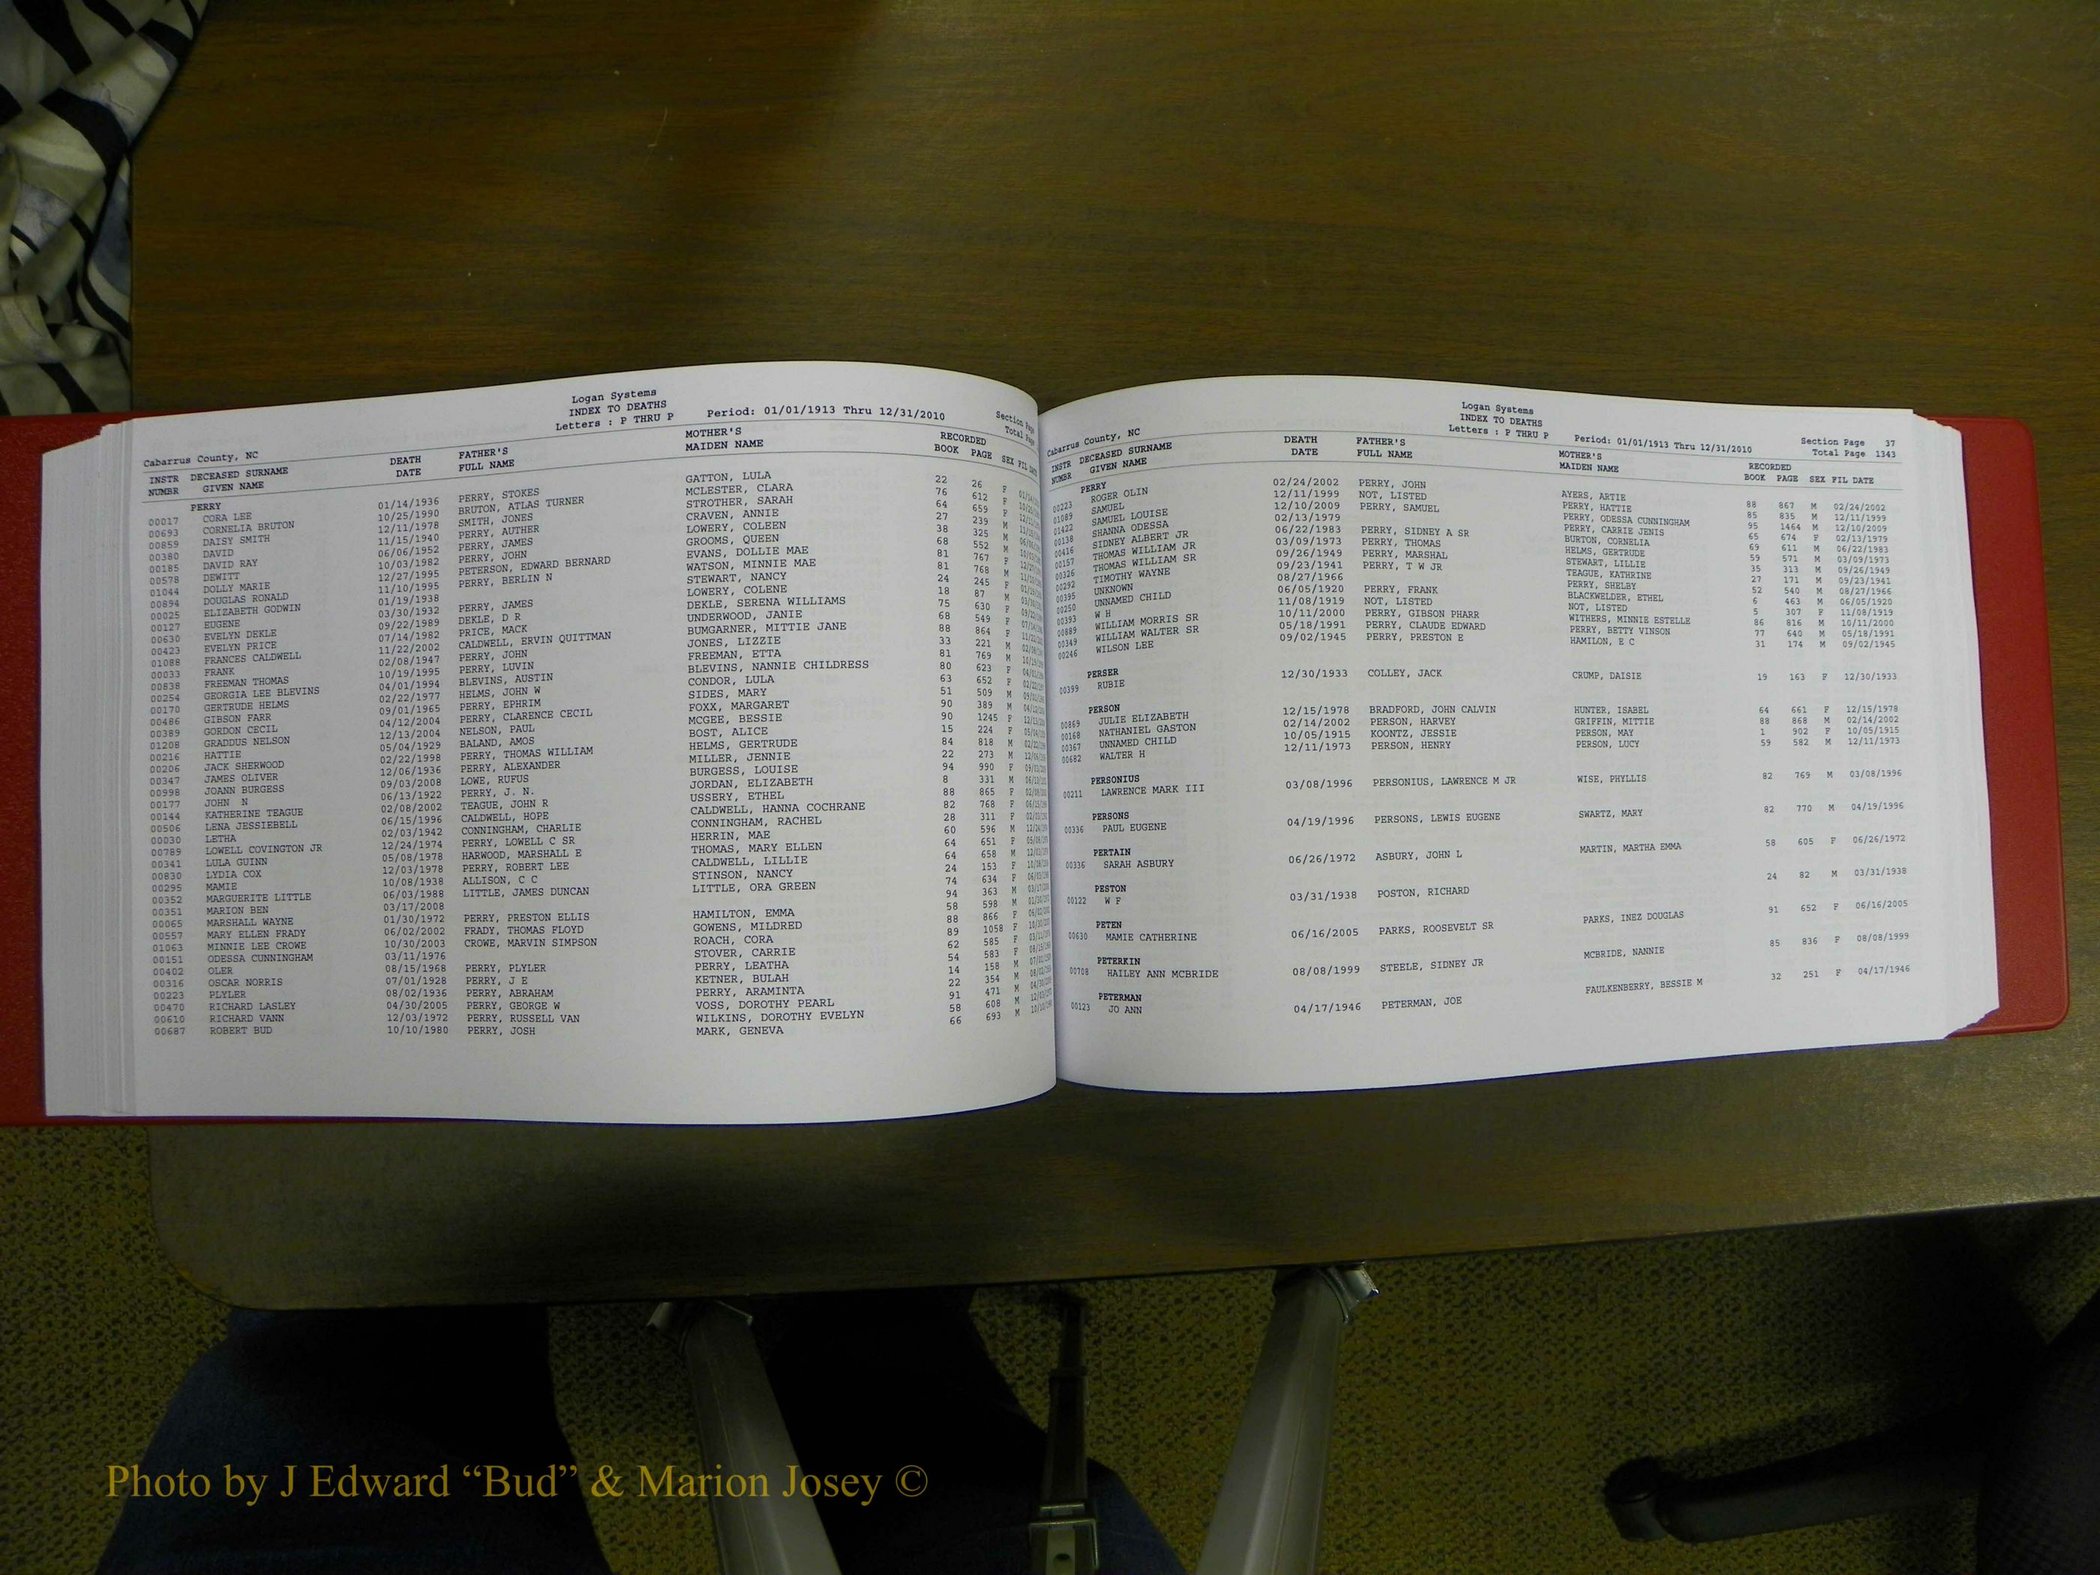 Logan Systems
INDEX TO DEATHS
Letters : P THRU P Period: 01/01/1913 Thru 12/31/2010
Section Page
Total Page
Cabarrus County, NC
INSTR DECEASED SURNAME DEATH FATHER'S MOTHER'S RECORDED
NUMBR GIVEN NAME DATE FULL NAME MAIDEN NAME BOOK PAGE SEX FIL DATE
PERRY
00017 CORA LEE 01/14/1936 PERRY, STOKES GATTON, LULA 22 26 F
00693 CORNELIA BRUTON 10/25/1990 BRUTON, ATLAS TURNER MCLESTER, CLARA 76 612 F
00859 DAISY SMITH 12/11/1978 SMITH, JONES STROTHER, SARAH 64 659 F
00380 DAVID 11/15/1940 PERRY, AUTHER CRAVEN, ANNIE 27 239 M
00185 DAVID RAY 06/06/1952 PERRY, JAMES LOWERY, COLEEN 38 325 M
00578 DEWITT 10/03/1982 PERRY, JOHN GROOMS, QUEEN 68 552 M
01044 DOLLY MARIE 12/27/1995 PETERSON, EDWARD BERNARD EVANS, DOLLIE MAE 81 767 F
00894 DOUGLAS RONALD 11/10/1995 PERRY, BERLIN N WATSON, MINNIE MAE 81 768 M
00025 ELIZABETH GODWIN 01/19/1938 STEWART, NANCY 24 245 F
00127 EUGENE 03/30/1932 PERRY, JAMES LOWERY, COLENE 18 87 M
00630 EVELYN DEKLE 09/22/1989 DEKLE, D R DEKLE, SERENA WILLIAMS 75 630 F
00423 EVELYN PRICE 07/14/1982 PRICE, MACK UNDERWOOD, JANIE 68 549 F
01088 FRANCES CALDWELL 11/22/2002 CALDWELL, ERVIN QUITTMAN BUMGARNER, MITTIE JANE 88 864 F
00033 FRANK 02/08/1947 PERRY, JOHN JONES, LIZZIE 33 221 M
00838 FREEMAN THOMAS 10/19/1995 PERRY, LUVIN FREEMAN, ETTA 81 769 M
00254 GEORGIA LEE BLEVINS 04/01/1994 BLEVINS, AUSTIN BLEVINS, NANNIE CHILDRESS 80 623 F
00170 GERTRUDE HELMS 02/22/1977 HELMS, JOHN W CONDOR, LULA 63 652 F
00486 GIBSON FARR 09/01/1965 PERRY, EPHRIM SIDES, MARY 51 509 M
00389 GORDON CECIL 04/12/2004 PERRY, CLARENCE CECIL FOXX, MARGARET 90 389 M
01208 GRADDUS NELSON 12/13/2004 NELSON, PAUL MCGEE, BESSIE 90 1245 F
00216 HATTIE 05/04/1929 BALAND, AMOS BOST, ALICE 15 224 F
00206 JACK SHERWOOD 02/22/1998 PERRY, THOMAS WILLIAM HELMS, GERTRUDE 84 818 M
00347 JAMES OLIVER 12/06/1936 PERRY, ALEXANDER MILLER, JENNIE 22 273 M
00998 JOANN BURGESS 09/03/2008 LOWE, RUFUS BURGESS, LOUISE 94 990 F
00177 JOHN N 06/13/1922 PERRY, J. N. JORDAN, ELIZABETH 8 331 M
00144 KATHERINE TEAGUE 02/08/2002 TEAGUE, JOHN R USSERY, ETHEL 88 865 F
00506 LENA JESSIEBELL 06/15/1996 CALDWELL, HOPE CALDWELL, HANNA COCHRANE 82 768 F
00030 LETHA 02/03/1942 CONNINGHAM, CHARLIE CONNINGHAM, RACHEL 28 311 F
00789 LOWELL COVINGTON JR 12/24/1974 PERRY, LOWELL C SR HERRIN, MAE 60 596 M
00341 LULA GUINN 05/08/1978 HARWOOD, MARSHALL E THOMAS, MARY ELLEN 64 651 F
00830 LYDIA COX 12/03/1978 PERRY, ROBERT LEE CALDWELL, LILLIE 64 658 M
00295 MAMIE 10/08/1938 ALLISON, C C STINSON, NANCY 24 153 F
00352 MARGUERITE LITTLE 06/03/1988 LITTLE, JAMES DUNCAN LITTLE, ORA GREEN 74 634 F
00351 MARION BEN 03/17/2008 94 363 M
00065 MARSHALL WAYNE 01/30/1972 PERRY, PRESTON ELLIS HAMILTON, EMMA 58 598 M
00557 MARY ELLEN FRADY 06/02/2002 FRADY, THOMAS FLOYD GOWENS, MILDRED 88 866 F
01063 MINNIE LEE CROWE 10/30/2003 CROWE, MARVIN SIMPSON ROACH, CORA 89 1058 F
00151 ODESSA CUNNINGHAM 03/11/1976 STOVER, CARRIE 62 585 F
00402 OLER 08/15/1968 PERRY, PLYLER PERRY, LEATHA 54 583 F
00316 OSCAR NORRIS 07/01/1928 PERRY, J E KETNER, BULAH 14 158 M
00223 PLYLER 08/02/1936 PERRY, ABRAHAM PERRY, ARAMINTA 22 354 M
00470 RICHARD LASLEY 04/30/2005 PERRY, GEORGE W VOSS, DOROTHY PEARL 91 471 M
00610 RICHARD VANN 12/03/1972 PERRY, RUSSELL VAN WILKINS, DOROTHY EVELYN 58 608 M
00687 ROBERT BUD 10/10/1980 PERRY, JOSH MARK, GENEVA 66 693 M
Logan Systems
INDEX TO DEATHS
Letters : P THRU P Period: 01/01/1913 Thru 12/31/2010
Section Page 37
Total Page 1343
Cabarrus County, NC
INSTR DECEASED SURNAME DEATH FATHER'S MOTHER'S RECORDED
NUMBR GIVEN NAME DATE FULL NAME MAIDEN NAME BOOK PAGE SEX FIL DATE
PERRY
00223 ROGER OLIN 02/24/2002 PERRY, JOHN AYERS, ARTIE 88 867 M 02/24/2002
01089 SAMUEL 12/11/1999 NOT, LISTED PERRY, HATTIE 85 835 M 12/11/1999
01422 SAMUEL LOUISE 12/10/2009 PERRY, SAMUEL PERRY, ODESSA CUNNINGHAM 95 1464 M 12/10/2009
00138 SHANNA ODESSA 02/13/1979 PERRY, CARRIE JENIS 65 674 F 02/13/1979
00416 SIDNEY ALBERT JR 06/22/1983 PERRY, SIDNEY A SR BURTON, CORNELIA 69 611 M 06/22/1983
00157 THOMAS WILLIAM JR 03/09/1973 PERRY, THOMAS HELMS, GERTRUDE 59 571 M 03/09/1973
00326 THOMAS WILLIAM SR 09/26/1949 PERRY, MARSHAL STEWART, LILLIE 35 313 M 09/26/1949
00292 TIMOTHY WAYNE 09/23/1941 PERRY, T W JR TEAGUE, KATHRINE 27 171 M 09/23/1941
00395 UNKNOWN 08/27/1966 PERRY, SHELBY 52 540 M 08/27/1966
00250 UNNAMED CHILD 06/05/1920 PERRY, FRANK BLACKWELDER, ETHEL 6 463 M 06/05/1920
00393 W H 11/08/1919 NOT, LISTED NOT, LISTED 5 307 F 11/08/1919
00889 WILLIAM MORRIS SR 10/11/2000 PERRY, GIBSON PHARR WITHERS, MINNIE ESTELLE 86 816 M 10/11/2000
00349 WILLIAM WALTER SR 05/18/1991 PERRY, CLAUDE EDWARD PERRY, BETTY VINSON 77 640 M 05/18/1991
00246 WILSON LEE 09/02/1945 PERRY, PRESTON E HAMILON, E C 31 174 M 09/02/1945
PERSER
00399 RUBIE 12/30/1933 COLLEY, JACK CRUMP, DAISIE 19 163 F 12/30/1933
PERSON
00869 JULIE ELIZABETH 12/15/1978 BRADFORD, JOHN CALVIN HUNTER, ISABEL 64 661 F 12/15/1978
00168 NATHANIEL GASTON 02/14/2002 PERSON, HARVEY GRIFFIN, MITTIE 88 868 M 02/14/2002
00367 UNNAMED CHILD 10/05/1915 KOONTZ, JESSIE PERSON, MAY 1 902 F 10/05/1915
00682 WALTER H 12/11/1973 PERSON, HENRY PERSON, LUCY 59 582 M 12/11/1973
PERSONIUS
00211 LAWRENCE MARK III 03/08/1996 PERSONIUS, LAWRENCE M JR WISE, PHYLLIS 82 769 M 03/08/1996
PERSONS
00336 PAUL EUGENE 04/19/1996 PERSONS, LEWIS EUGENE SWARTZ, MARY 82 770 M 04/19/1996
PERTAIN
00336 SARAH ASBURY 06/26/1972 ASBURY, JOHN L MARTIN, MARTHA EMMA 58 605 F 06/26/1972
PESTON
00122 W F 03/31/1938 POSTON, RICHARD 24 82 M 03/31/1938
PETEN
00630 MAMIE CATHERINE 06/16/2005 PARKS, ROOSEVELT SR PARKS, INEZ DOUGLAS 91 652 F 06/16/2005
PETERKIN
00708 HAILEY ANN MCBRIDE 08/08/1999 STEELE, SIDNEY JR MCBRIDE, NANNIE 85 836 F 08/08/1999
PETERMAN
00123 JO ANN 04/17/1946 PETERMAN, JOE FAULKENBERRY, BESSIE M 32 251 F 04/17/1946
Photo by J Edward “Bud” & Marion Josey ©